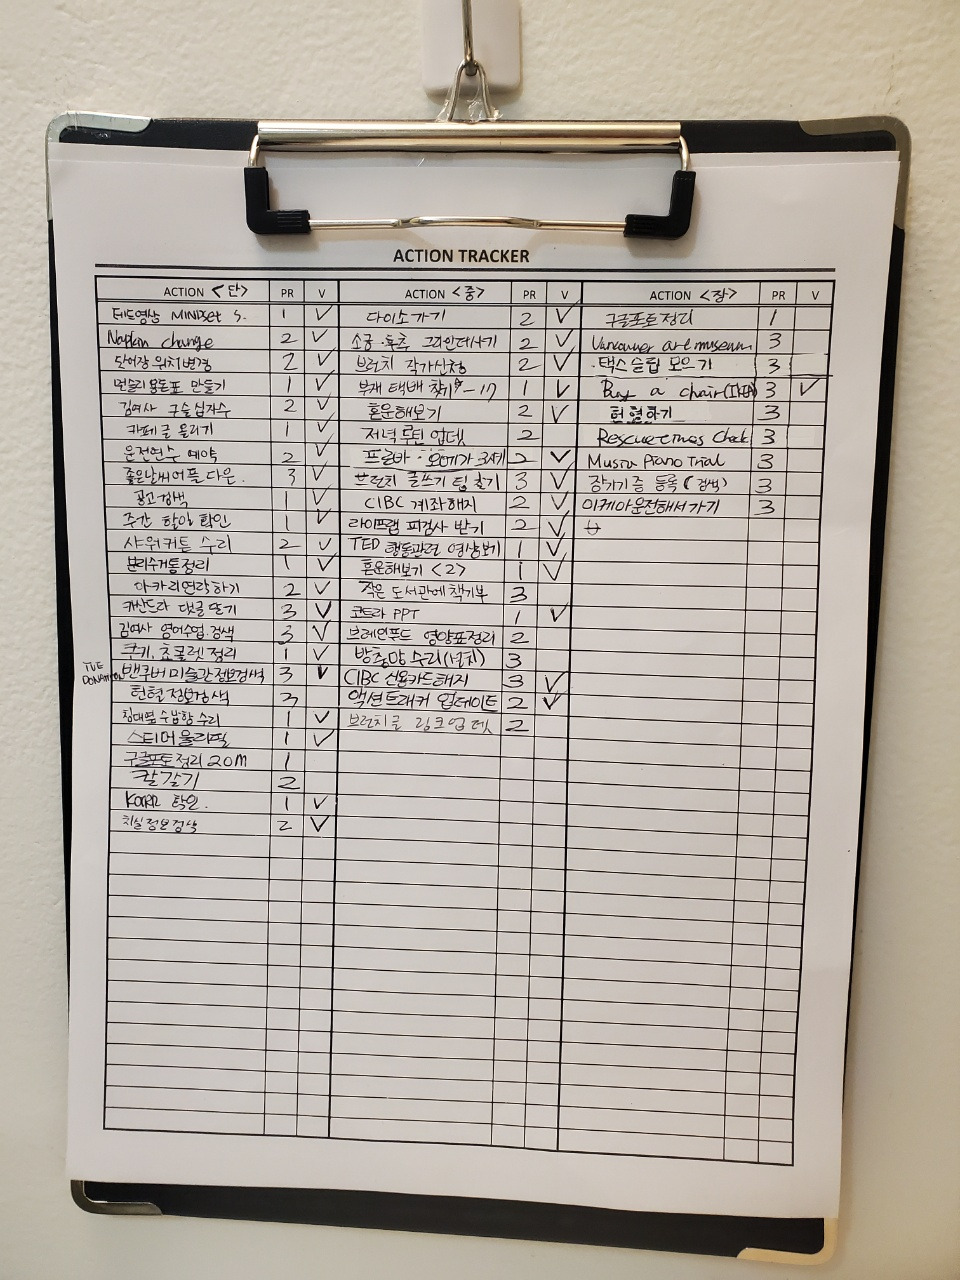 ACTION TRACKER
ACTION <단> PR V
테드영상 MINDSET 1 V
Napkin change 2 V
단어장 위치변경 2 V
먼슬리 용돈표 만들기 1 V
김여사 구슬십자수 2 V
카페 글 올리기 1 V
운전연수 예약 2 V
좋은날씨 어플 다운. 3 V
광고검색 1 V
주간 할일 확인 1 V
샤워커튼 수리 2 V
분리수거통정리 1 V
아카리연락하기 2 V
카산드라 댓글 뜨기 3 V
김여사 영어수업.검색 3 V
쿠키, 쵸콜렛 정리 1 V
TUE DONATION
밴쿠버미술관정보검색 3 V
헌혈정보검색 3
침대옆 수납함 수리 1 V
스티머 올리필 1 V
구글포토정리 20M 1
칼갈기 2
확인. 1 V
치실정보검색 2 V
ACTION <중> PR V
다이소가기 2 V
소금·후추 그라인더사기 2 V
브런치 작가신청 2 V
부재 택배 찾기 1 V
혼운해보기 2 V
저녁 루틴 업뎃 2
프로바·오메가 3사기 2 V
브런치 글쓰기 팁 찾기 3 V
CIBC 계좌해지 2 V
라이프랩 피검사 받기 2 V
TED 행동관련 영상보기 1 V
혼운해보기 <2> 1 V
작은 도서관에 책기부 3
코트라 PPT 1 V
브레인푸드 영양표정리 2
방충망 수리(설치) 3
CIBC 신용카드해지 3 V
액션트래커 업데이트 2 V
브런치글 링크업뎃 2
ACTION <장> PR V
구글포토정리 1
Vancouver art museum 3
택스슬립 모으기 3
Buy a chair(IKEA) 3 V
헌혈하기 3
Rescue times Check 3
Piano Trial 3
장기기증 등록(검색) 3
이케아운전해서가기 3